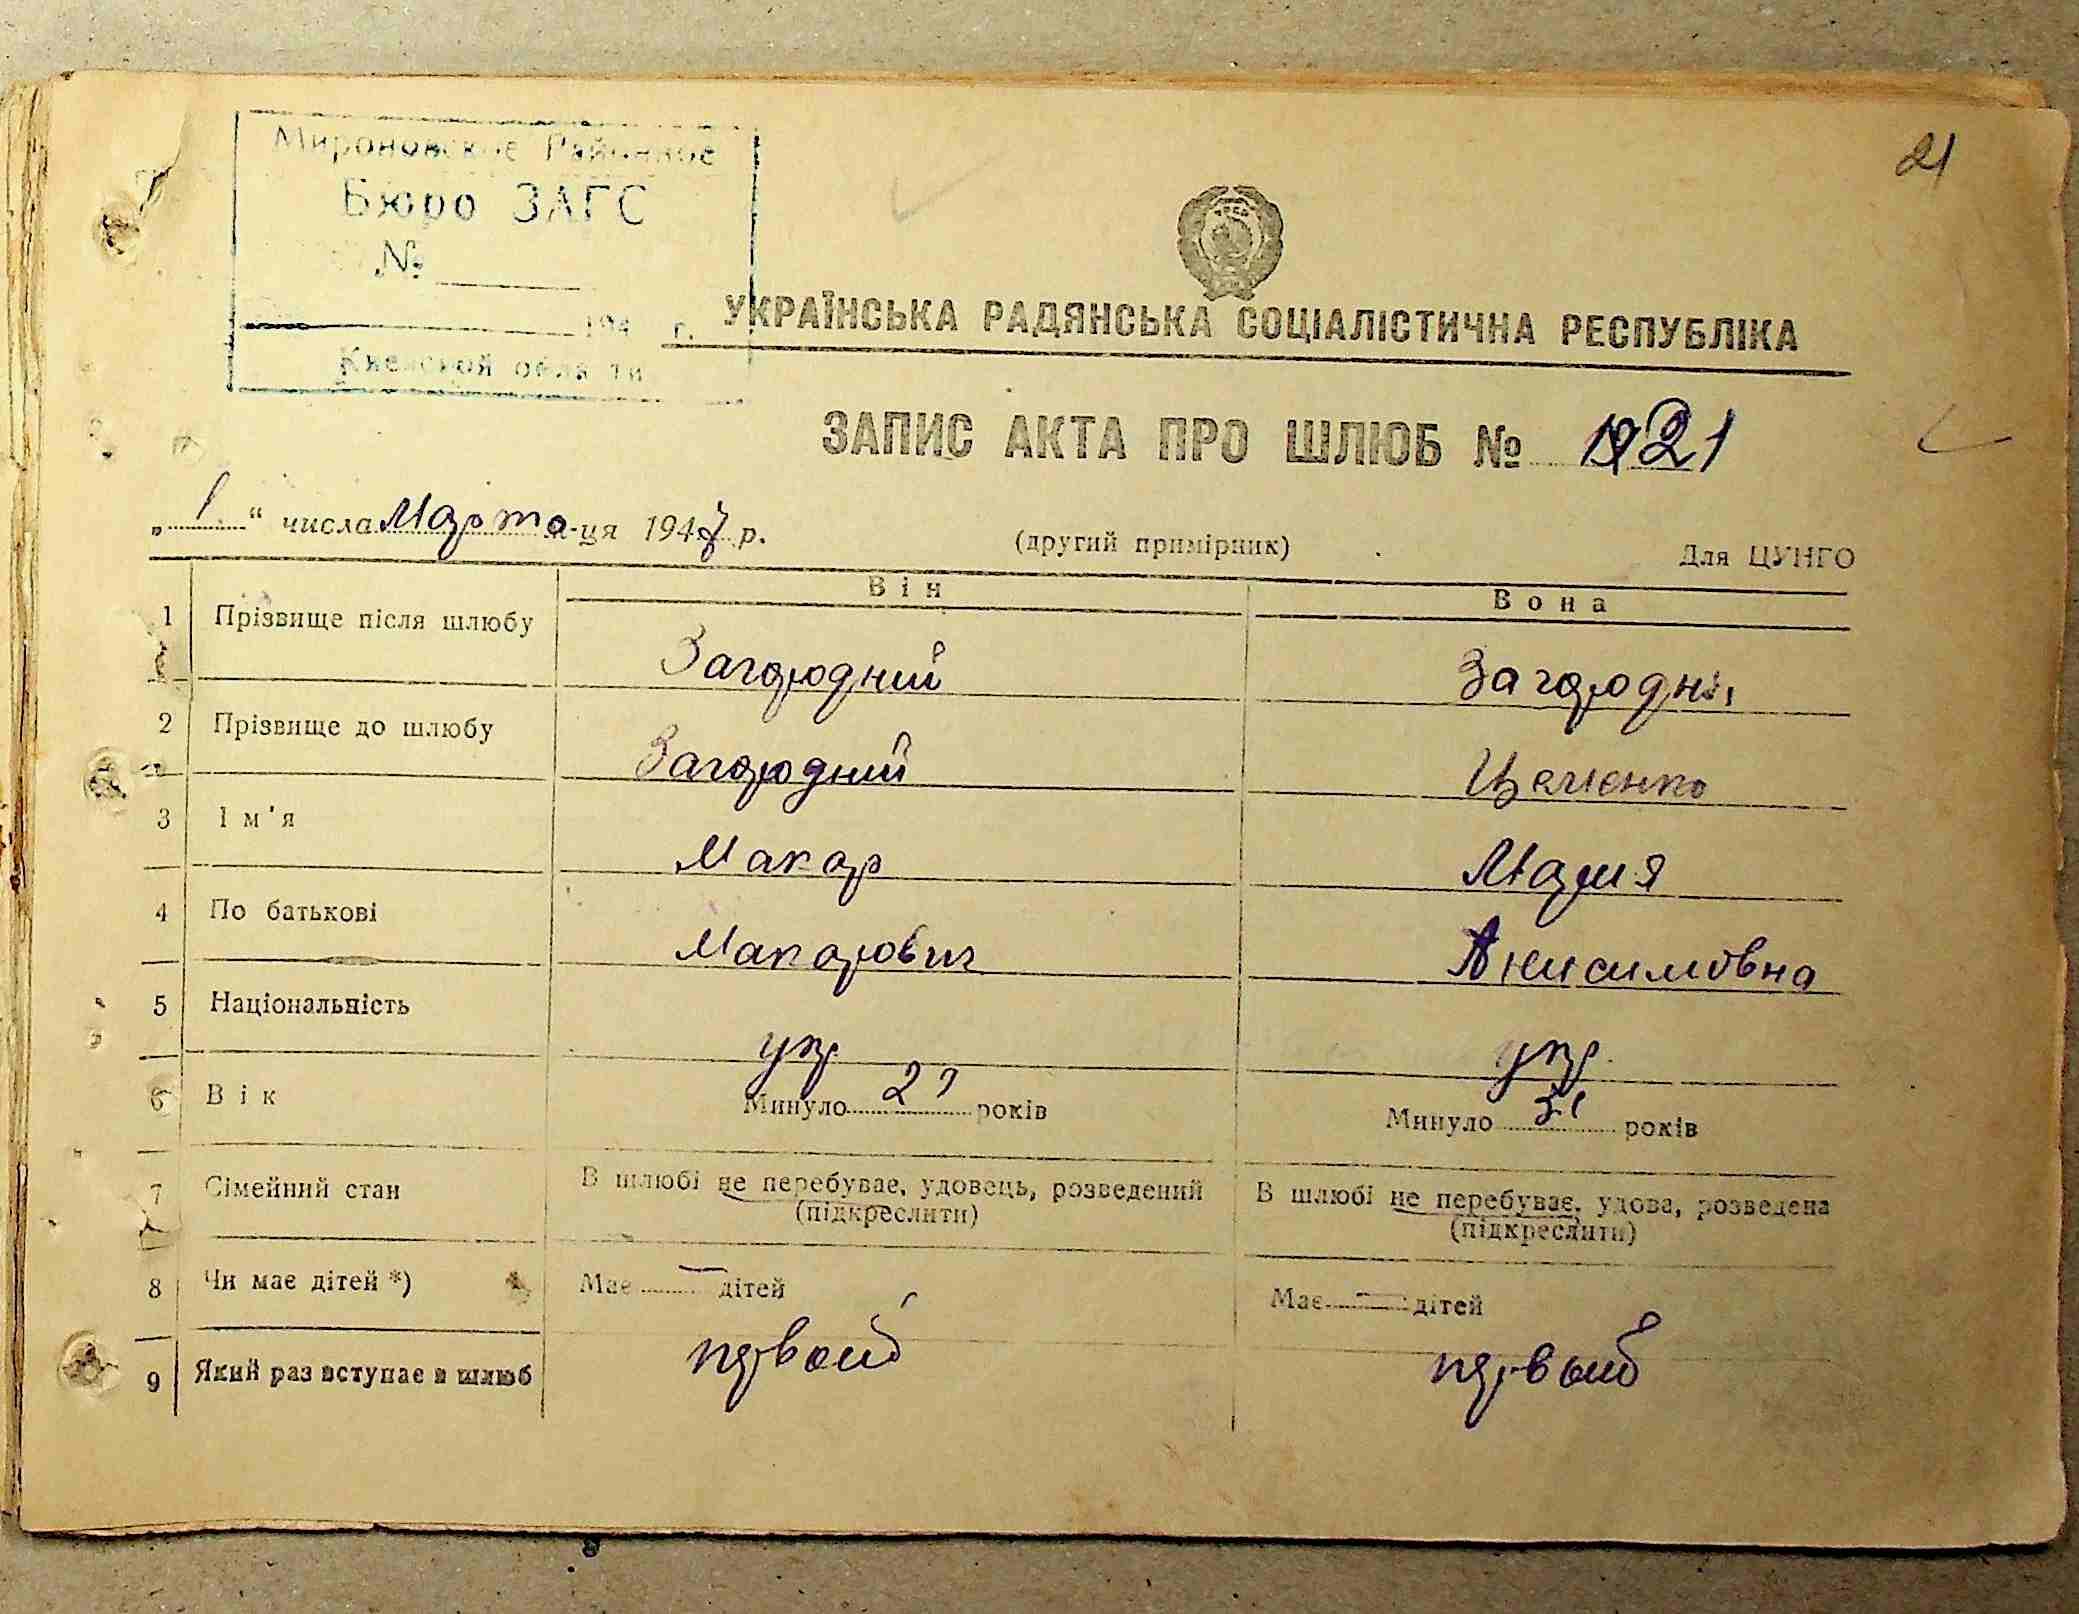 21
Мироновское Районное
Бюро ЗАГС
№
194 г.
Киевской области
УКРАЇНСЬКА РАДЯНСЬКА СОЦІАЛІСТИЧНА РЕСПУБЛІКА
ЗАПИС АКТА ПРО ШЛЮБ № 21
„ 1 “ числа Марта м-ця 1947 р. (другий примірник) Для ЦУНГО
Він Вона
1 Прізвище після шлюбу Загородний Загородн
2 Прізвище до шлюбу Загородний
3 Ім'я Макар Мария
4 По батькові Макарович Анисимовна
5 Національність укр укр.
6 Вік Минуло 29 років Минуло 31 років
7 Сімейний стан В шлюбі не перебуває, удовець, розведений В шлюбі не перебуває, удова, розведена
(підкреслити) (підкреслити)
8 Чи має дітей *) Має — дітей Має — дітей
9 Який раз вступає в шлюб первый первый